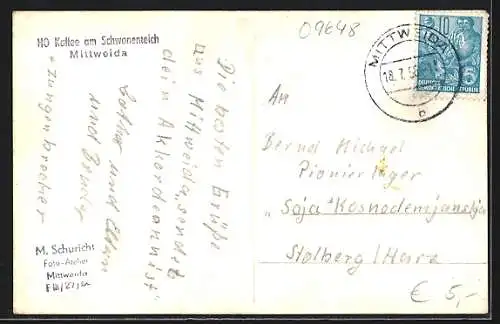 HO Kaffee am Schwanenteich
Mittweida
Die besten Grüße
aus Mittweida, sendet
dein "Akkordeonist"
Lothar und Eltern
und Bruder
"Zungenbrecher
M. Schuricht
Foto-Atelier
Mittweida
09648
MITTWEIDA
18.7.56
b
10
5
An
Bernd Michael
Pionierlager
„Soja" Kosnodemjanskja
Stolberg/Harz
€ 5,-